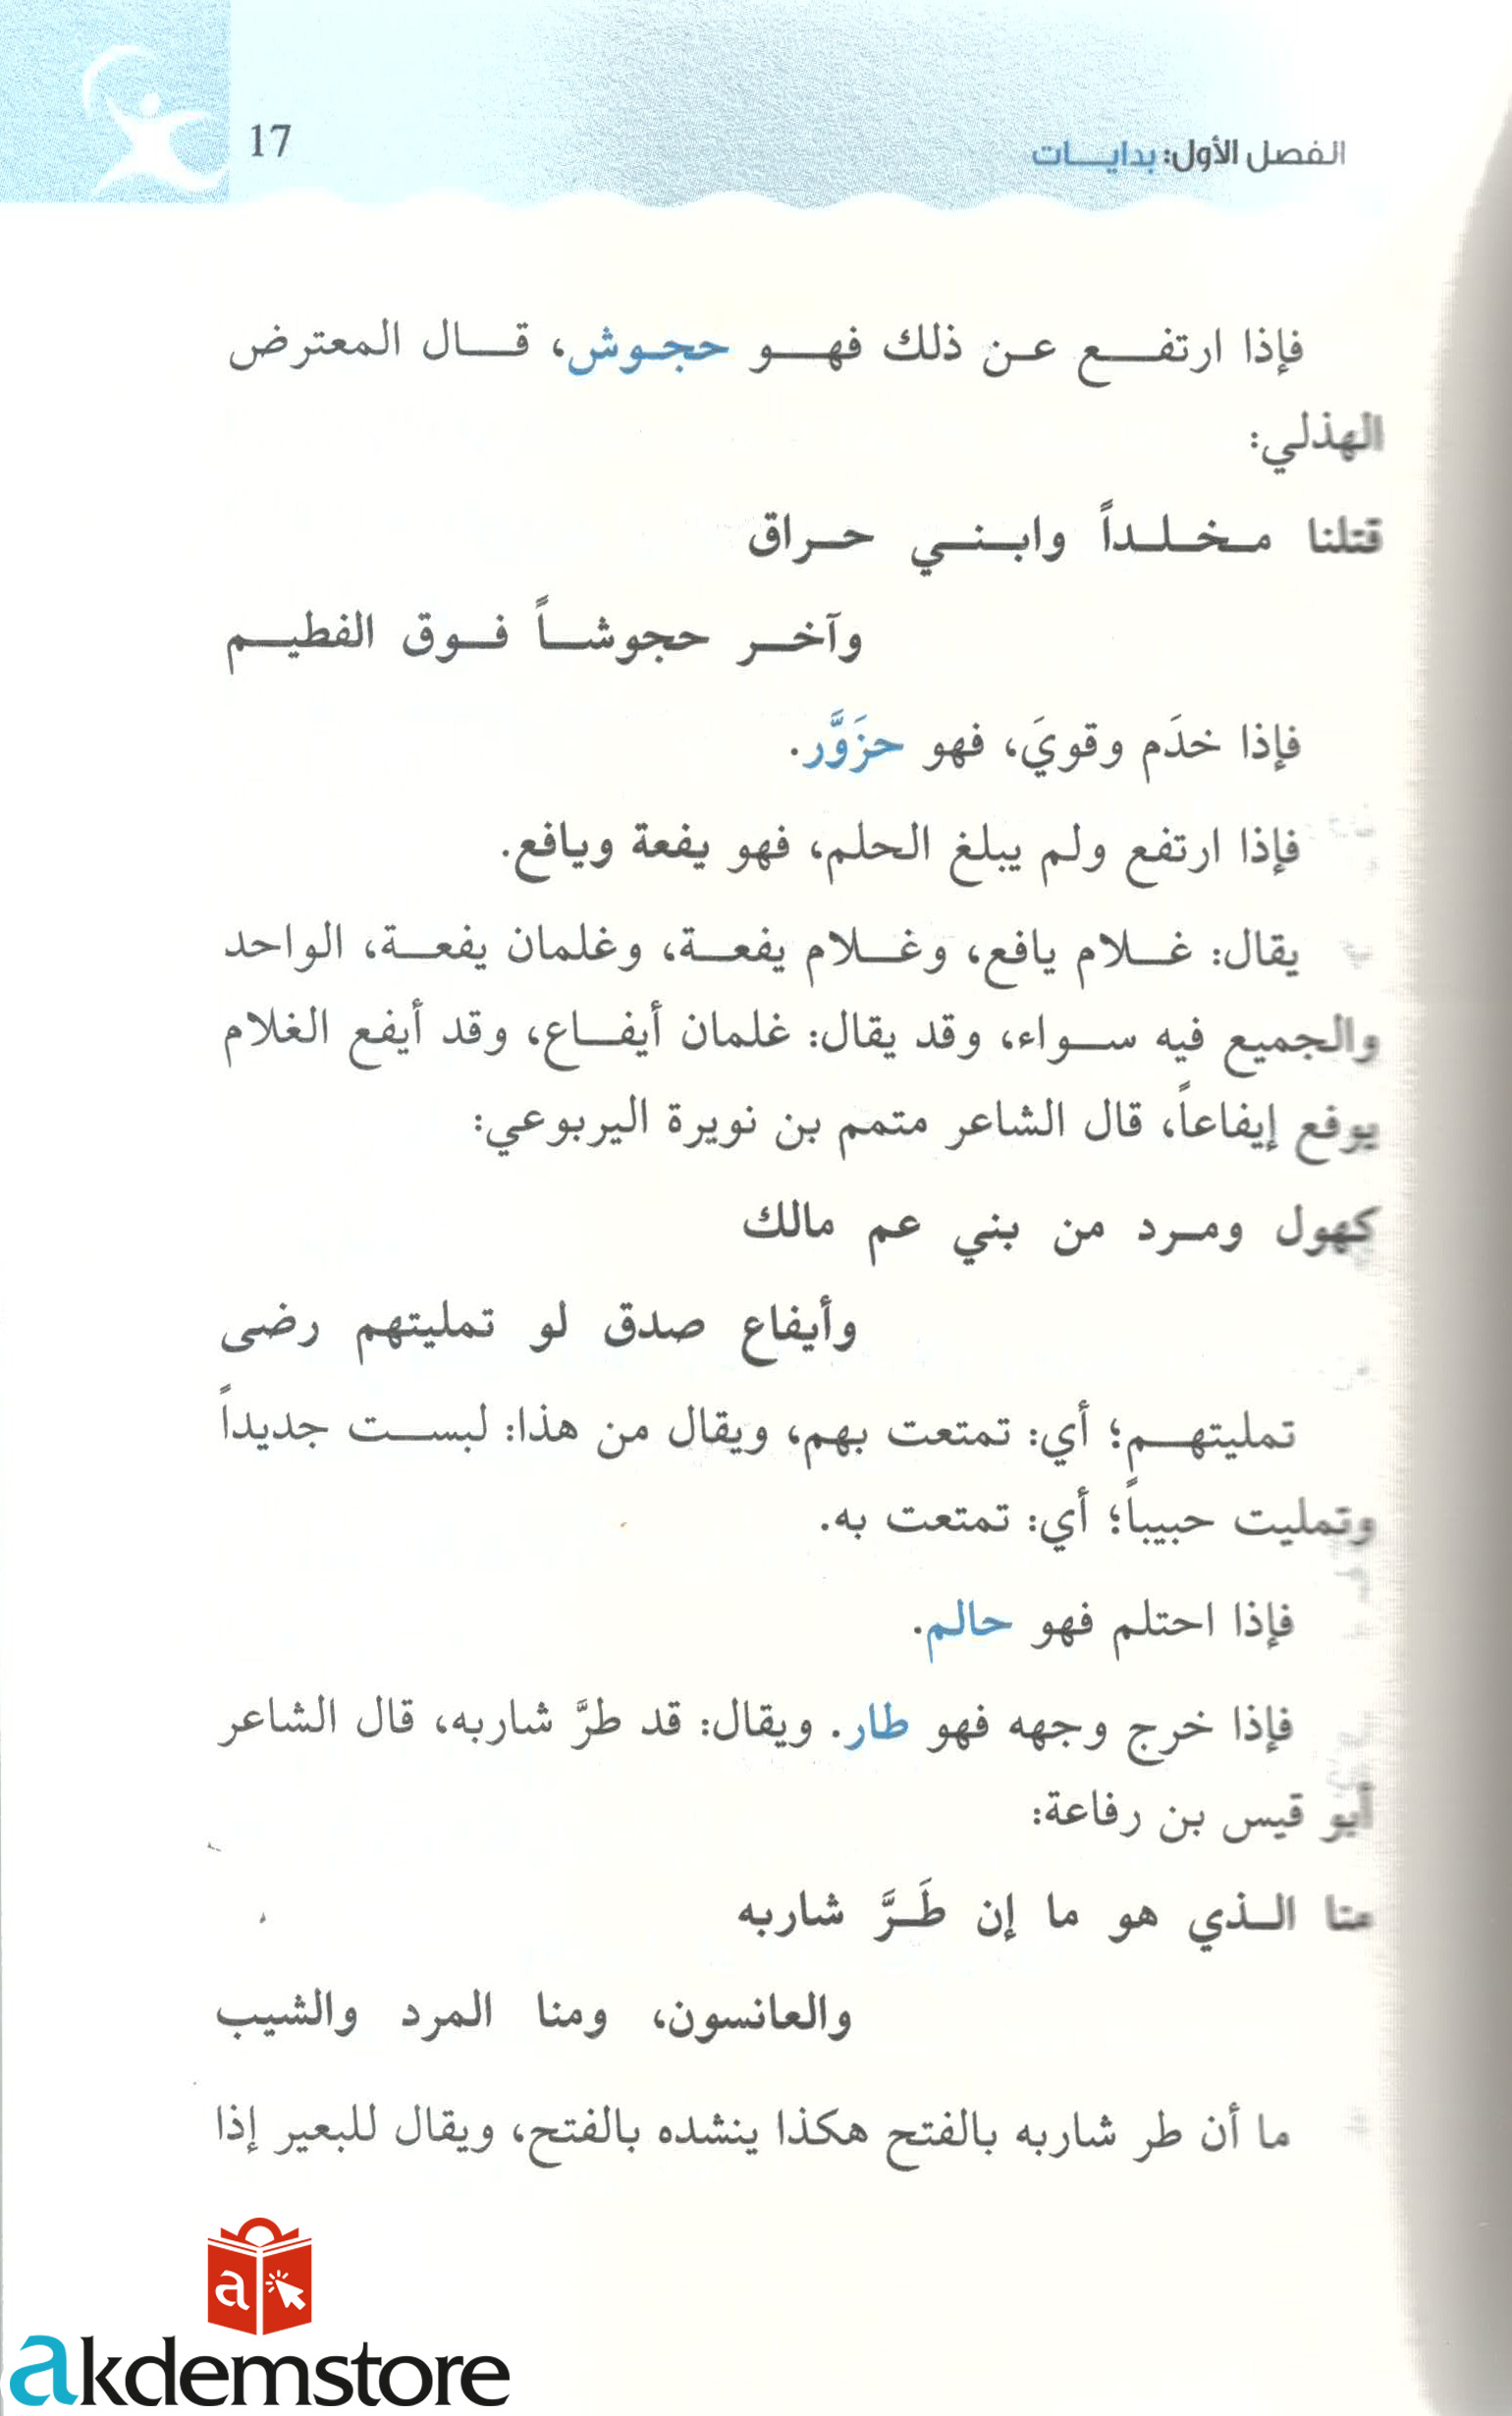 الفصل الأول: بدايـــات
17
فإذا ارتفـــع عـن ذلك فهـــو حجـوش، قـــال المعترض
الهذلي:
قتلنا مـخـلـداً وابـنـي حـراق
وآخـــر حجوشـــاً فـــوق الفطيـــم
فإذا خدَم وقويَ، فهو حزَوَّر.
فإذا ارتفع ولم يبلغ الحلم، فهو يفعة ويافع.
يقال: غـــلام يافع، وغـــلام يفعـــة، وغلمان يفعـــة، الواحد
والجميع فيه ســـواء، وقد يقال: غلمان أيفـــاع، وقد أيفع الغلام
يوفع إيفاعاً، قال الشاعر متمم بن نويرة اليربوعي:
كهول ومـرد من بني عم مالك
وأيفاع صدق لو تمليتهم رضى
تمليتهـــم؛ أي: تمتعت بهم، ويقال من هذا: لبســـت جديداً
وتمليت حبيباً؛ أي: تمتعت به.
فإذا احتلم فهو حالم.
فإذا خرج وجهه فهو طار. ويقال: قد طرَّ شاربه، قال الشاعر
أبو قيس بن رفاعة:
منا الـذي هو ما إن طَـرَّ شاربه
والعانسون، ومنا المرد والشيب
ما أن طر شاربه بالفتح هكذا ينشده بالفتح، ويقال للبعير إذا
a
akdemstore